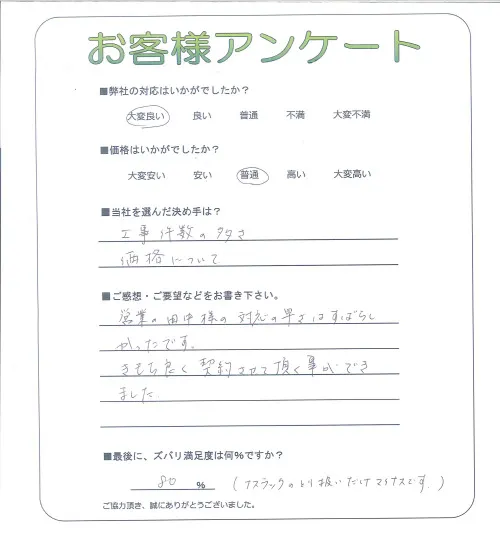 お客様アンケート
■弊社の対応はいかがでしたか?
大変良い 良い 普通 不満 大変不満
■価格はいかがでしたか?
大変安い 安い 普通 高い 大変高い
■当社を選んだ決め手は?
工事件数の多さ
価格について
■ご感想・ご要望などをお書き下さい。
営業の田中様の対応の早さはすばらし
かったです。
きもち良く契約させて頂く事ができ
ました.
■最後に、ズバリ満足度は何%ですか?
80 % (ナスラックのとり扱いだけマイナスです。)
ご協力頂き、誠にありがとうございました。